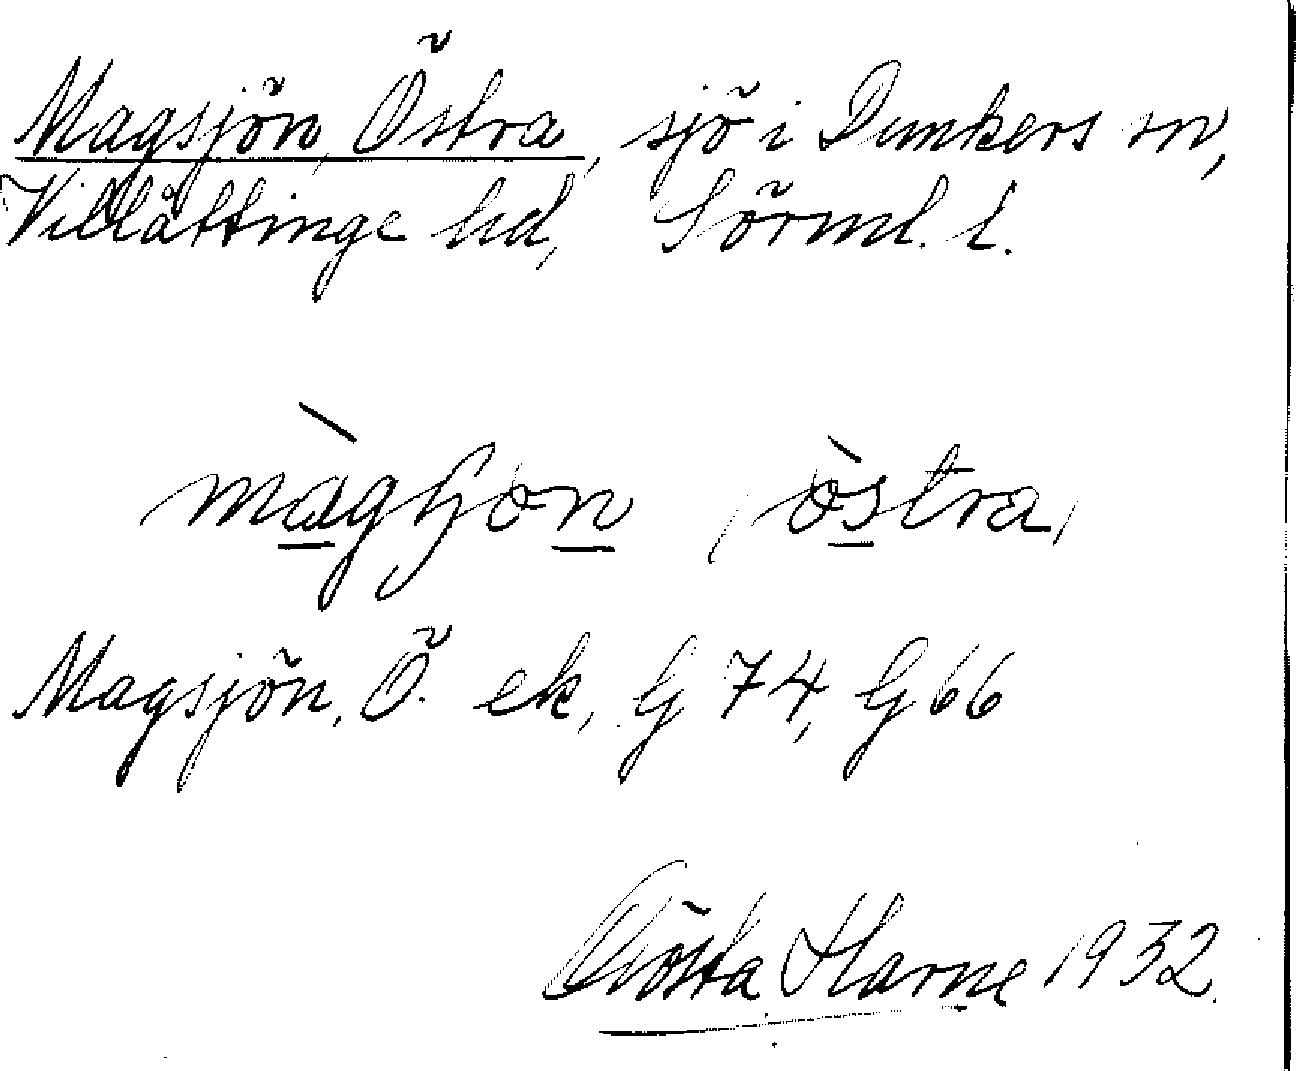 Magsjön, Östra, sjö i Dunkers sn,
Villåttinge hd, Sörml. l.
màgʃon, òstra,
Magsjön, Ö. ek, G 74, G 66
Gösta Harne 1932.